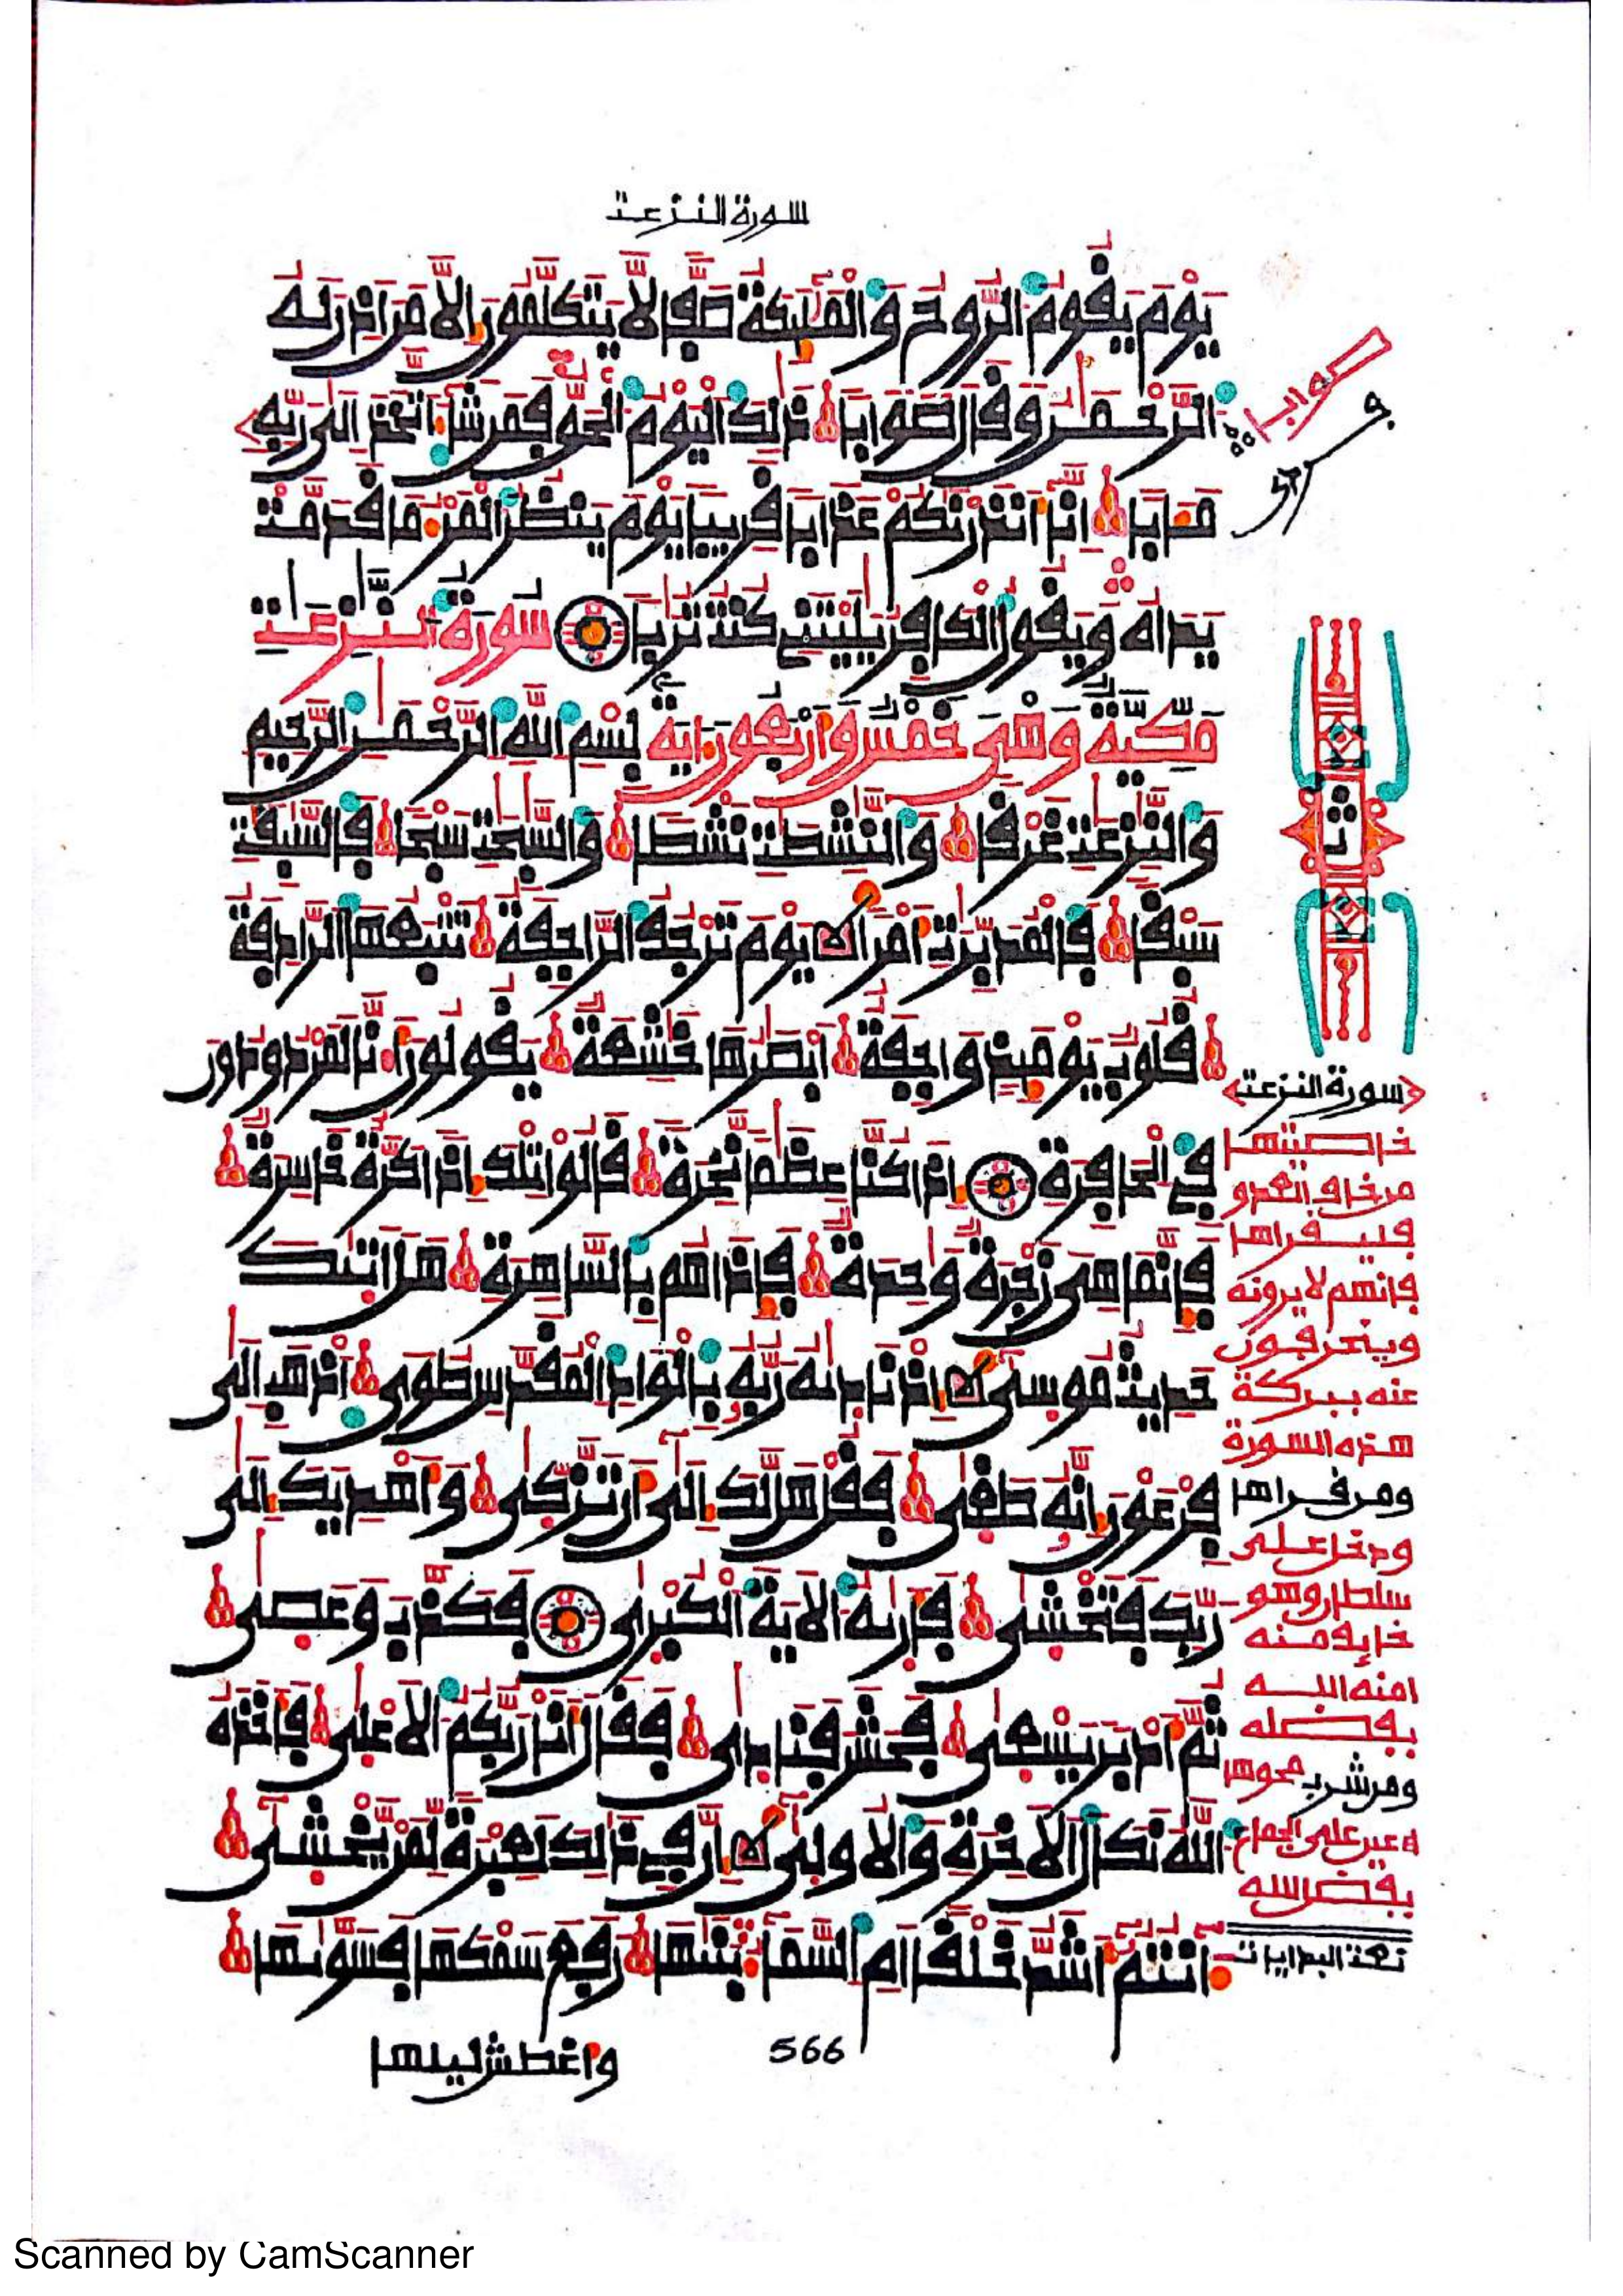 سورة النزعت
يَوْمَ يَقُومُ الرُّوحُ وَالْمَلَٰٓئِكَةُ صَفّٗا لَّا يَتَكَلَّمُونَ إِلَّا مَنْ أَذِنَ لَهُ
الرَّحْمَٰنُ وَقَالَ صَوَابٗا ذَٰلِكَ الْيَوْمُ الْحَقُّ فَمَن شَآءَ اتَّخَذَ إِلَىٰ رَبِّهِ
مَـَٔابًا إِنَّآ أَنذَرْنَٰكُمْ عَذَابٗا قَرِيبٗا يَوْمَ يَنظُرُ الْمَرْءُ مَا قَدَّمَتْ
يَدَاهُ وَيَقُولُ الْكَافِرُ يَٰلَيْتَنِي كُنتُ تُرَٰبًا سُورَةُ النَّٰزِعَٰتِ
مَكِّيَّةٌ وَهْيَ خَمْسٌ وَأَرْبَعُونَ ءَايَةً بِسْمِ اللَّهِ الرَّحْمَٰنِ الرَّحِيمِ
وَالنَّٰزِعَٰتِ غَرْقٗا وَالنَّٰشِطَٰتِ نَشْطٗا وَالسَّٰبِحَٰتِ سَبْحٗا فَالسَّٰبِقَٰتِ
سَبْقٗا فَالْمُدَبِّرَٰتِ أَمْرًا يَوْمَ تَرْجُفُ الرَّاجِفَةُ تَتْبَعُهَا الرَّادِفَةُ
قُلُوبٞ يَوْمَئِذٖ وَاجِفَةٌ أَبْصَٰرُهَا خَٰشِعَةٞ يَقُولُونَ أَٰ۟نَّا لَمَرْدُودُونَ
فِي الْحَافِرَةِ إِذَا كُنَّا عِظَٰمٗا نَّخِرَةٗ قَالُوا تِلْكَ إِذٗا كَرَّةٌ خَاسِرَةٞ
فَإِنَّمَا هِيَ زَجْرَةٞ وَٰحِدَةٞ فَإِذَا هُم بِالسَّاهِرَةِ هَلْ أَتَٰكَ
حَدِيثُ مُوسَىٰٓ إِذْ نَادَٰهُ رَبُّهُ بِالْوَادِ الْمُقَدَّسِ طُوَى اذْهَبْ إِلَىٰ
فِرْعَوْنَ إِنَّهُ طَغَىٰ فَقُلْ هَل لَّكَ إِلَىٰٓ أَن تَزَّكَّىٰ وَأَهْدِيَكَ إِلَىٰ
رَبِّكَ فَتَخْشَىٰ فَأَرَٰهُ الْأَيَةَ الْكُبْرَىٰ فَكَذَّبَ وَعَصَىٰ
ثُمَّ أَدْبَرَ يَسْعَىٰ فَحَشَرَ فَنَادَىٰ فَقَالَ أَنَا رَبُّكُمُ الْأَعْلَىٰ فَأَخَذَهُ
اللَّهُ نَكَالَ الْأَخِرَةِ وَالْأُولَىٰٓ إِنَّ فِي ذَٰلِكَ لَعِبْرَةٗ لِّمَنْ يَخْشَىٰٓ
ءَأَنتُمُۥٓ أَشَدُّ خَلْقًا أَمِ السَّمَآءُ بَنَىٰهَا رَفَعَ سَمْكَهَا فَسَوَّىٰهَا
566
واغطش ليلها
ثمن
سورة النزعت
خاصيتها
من خاف العدو
فليقراها
فانهم لا يرونه
وينحرفون
عنه ببركة
هذه السورة
ومن قراها
ودخل على
سلطان وهو
خايف منه
امنه الله
بفضله
ومن شرب محوها
على الجماع
بفضل الله
Scanned by CamScanner